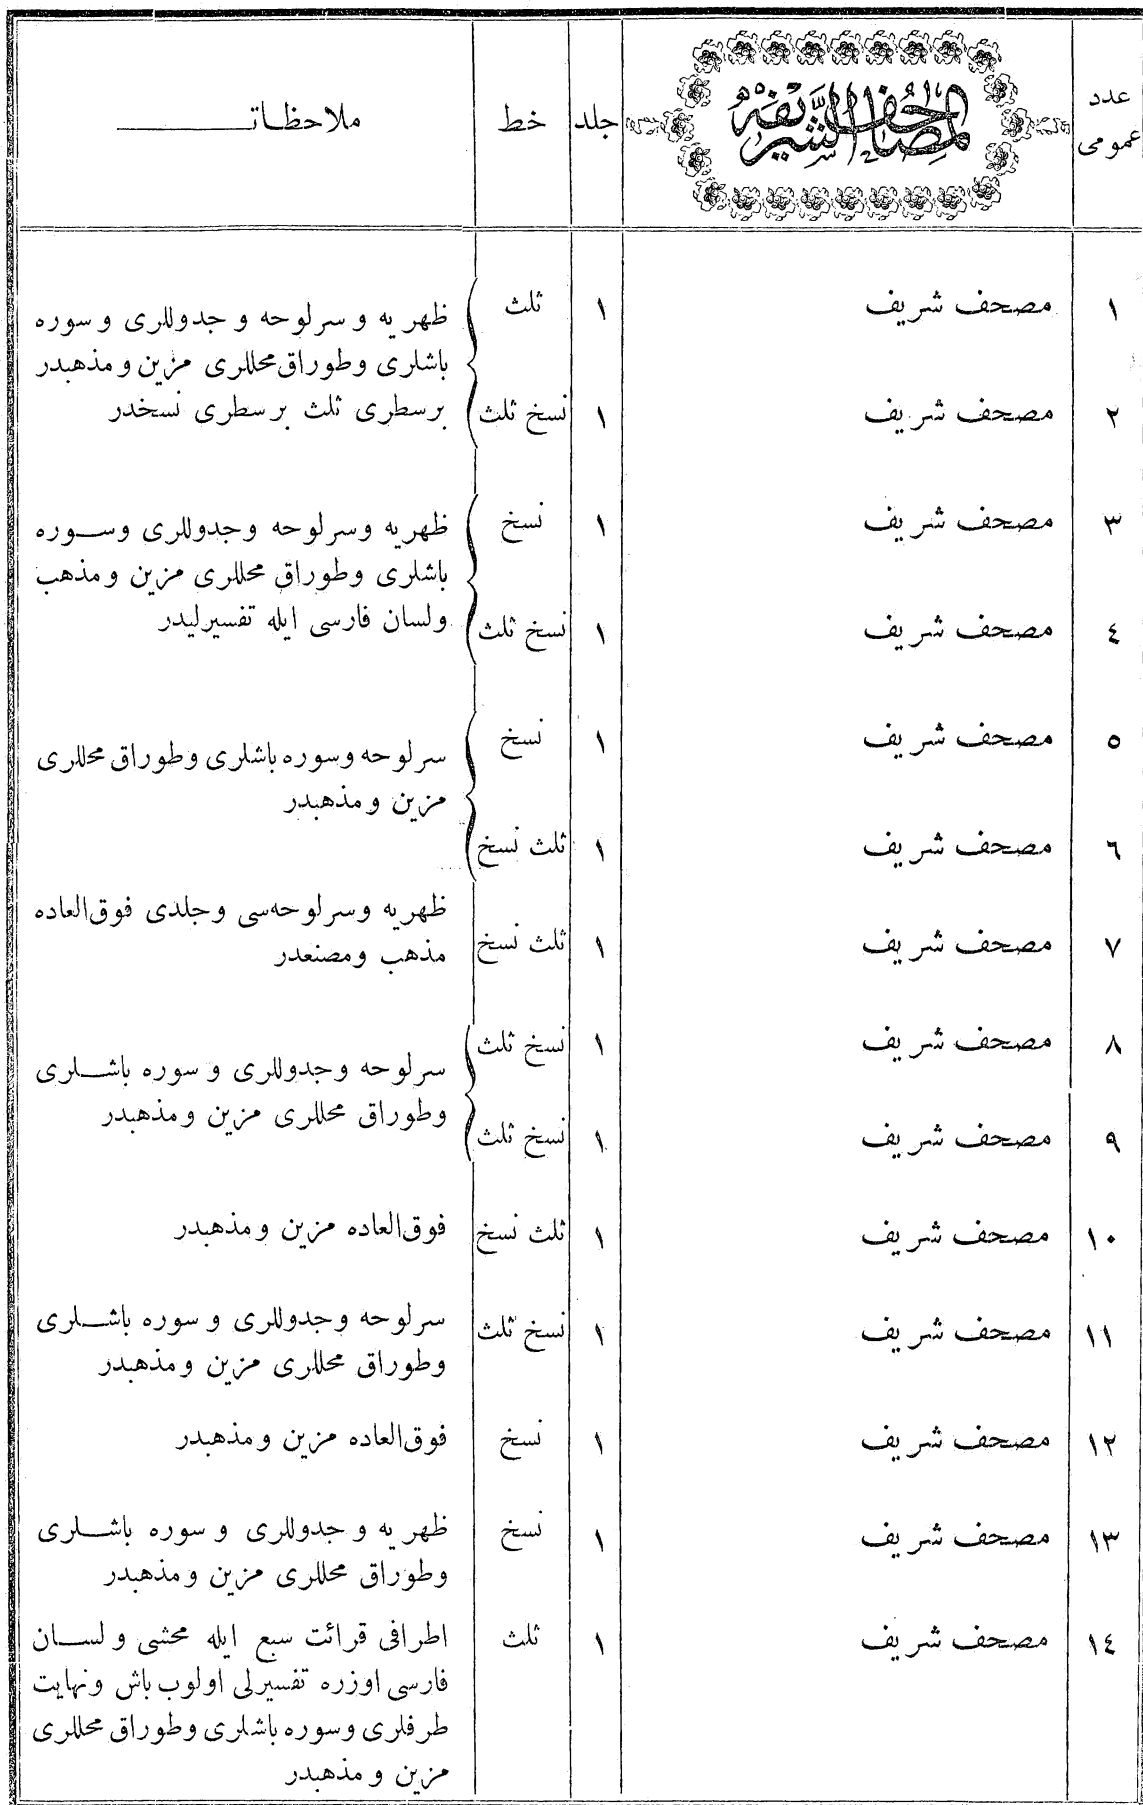 عدد عمومی المصاحف الشريفه جلد خط ملاحظات
١ مصحف شریف ١ ثلث
ظهریه و سرلوحه و جدوللری و سوره
باشلری وطوراق محللری مزین و مذهبدر
٢ مصحف شریف ١ نسخ ثلث
برسطری ثلث برسطری نسخدر
٣ مصحف شریف ١ نسخ
ظهریه وسرلوحه وجدوللری وسوره
باشلری وطوراق محللری مزین ومذهب
٤ مصحف شریف ١ نسخ ثلث
ولسان فارسی ایله تفسیرلیدر
٥ مصحف شریف ١ نسخ
سرلوحه وسوره باشلری وطوراق محللری
مزین ومذهبدر
٦ مصحف شریف ١ ثلث نسخ
٧ مصحف شریف ١ ثلث نسخ
ظهریه وسرلوحه‌سی وجلدی فوق‌العاده
مذهب ومصنعدر
٨ مصحف شریف ١ نسخ ثلث
سرلوحه وجدوللری و سوره باشلری
وطوراق محللری مزین ومذهبدر
٩ مصحف شریف ١ نسخ ثلث
١٠ مصحف شریف ١ ثلث نسخ فوق‌العاده مزین ومذهبدر
١١ مصحف شریف ١ نسخ ثلث سرلوحه وجدوللری و سوره باشلری
وطوراق محللری مزین ومذهبدر
١٢ مصحف شریف ١ نسخ فوق‌العاده مزین ومذهبدر
١٣ مصحف شریف ١ نسخ ظهریه و جدوللری و سوره باشلری
وطوراق محللری مزین ومذهبدر
١٤ مصحف شریف ١ ثلث اطرافی قرائت سبع ایله محشی ولسان
فارسی اوزره تفسیرلی اولوب باش ونهایت
طرفلری وسوره باشلری وطوراق محللری
مزین و مذهبدر